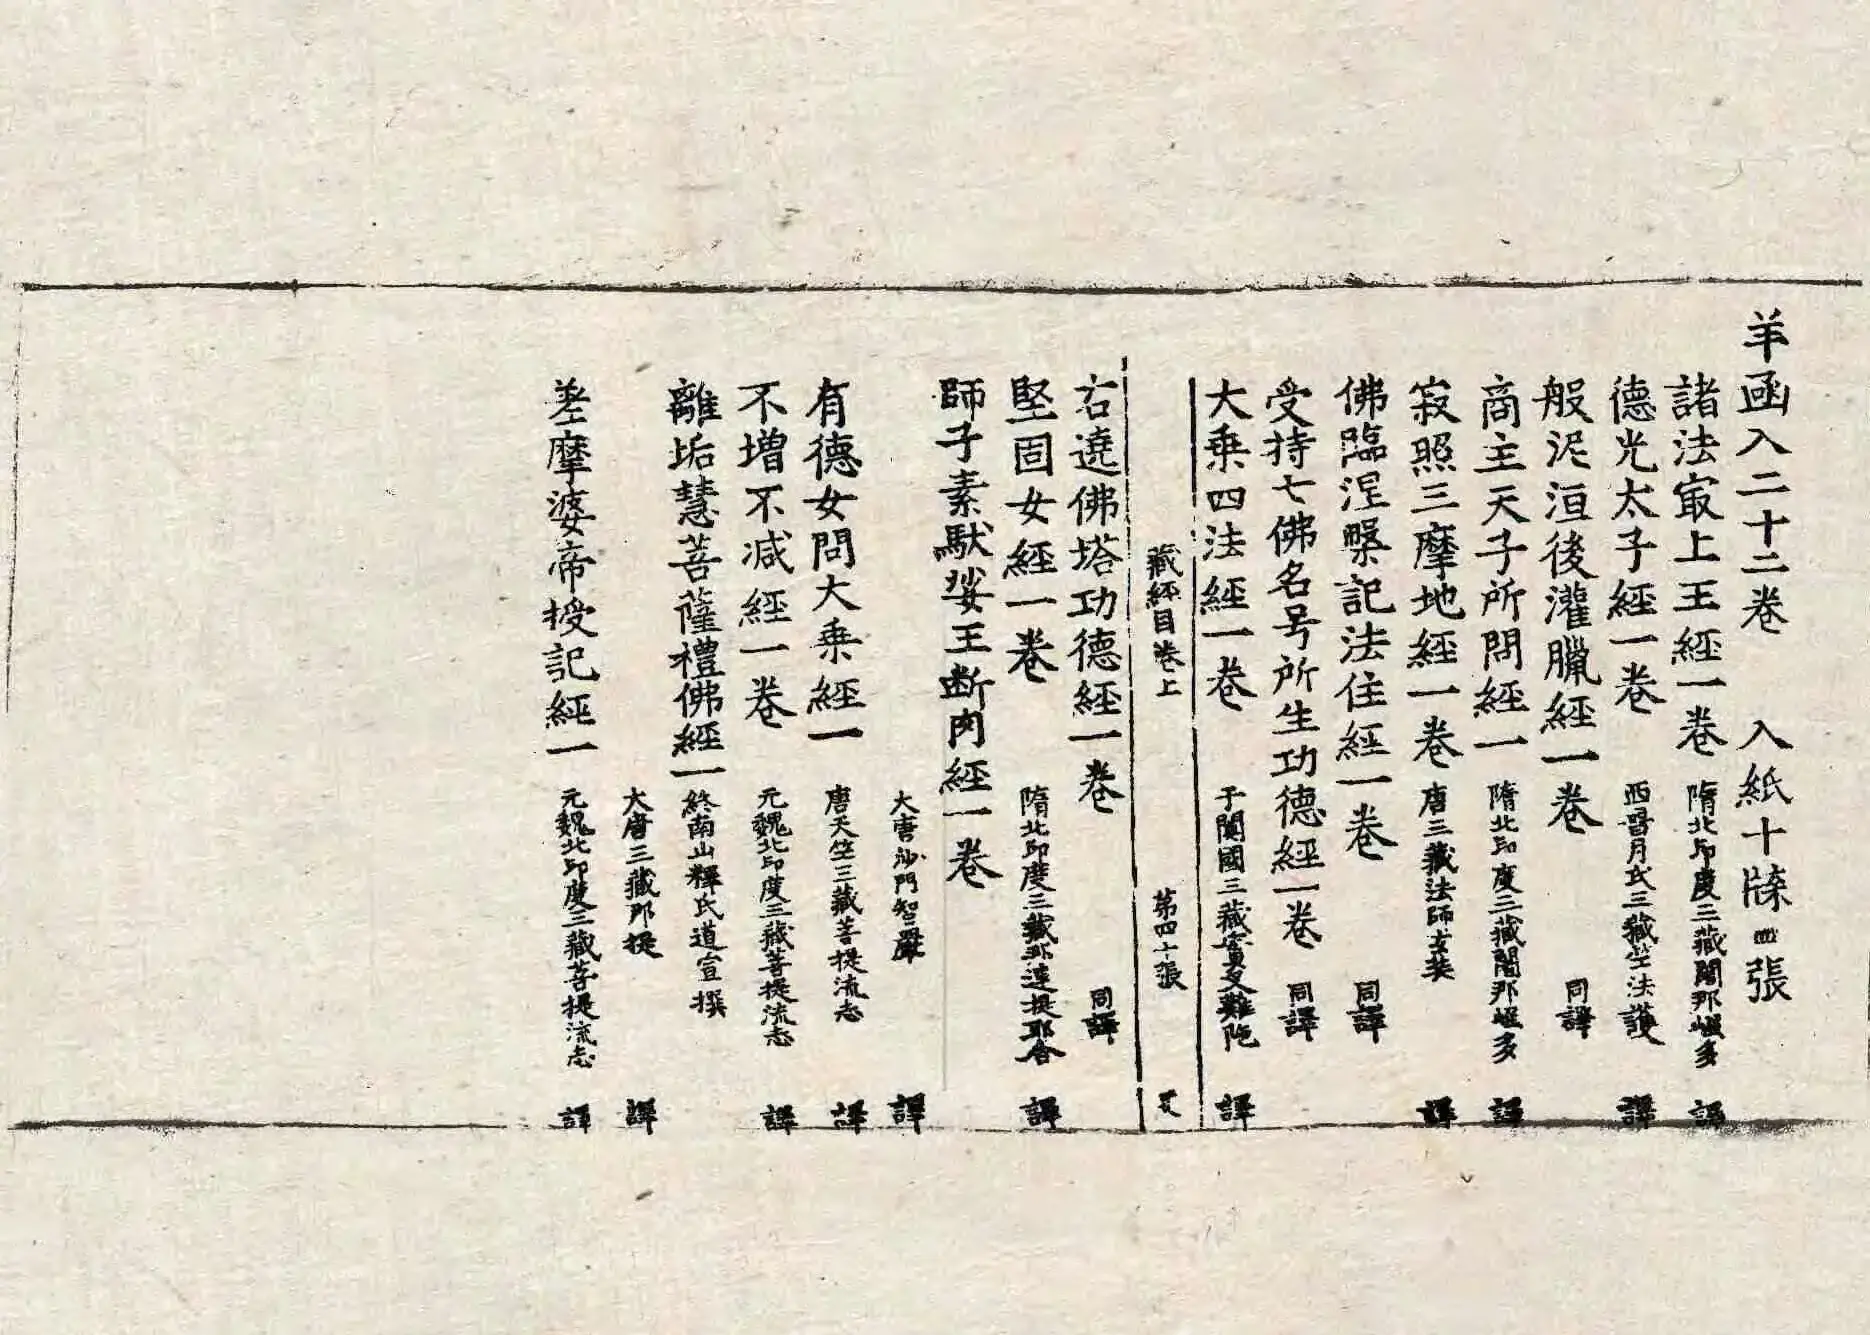 羊函入二十二卷 入紙十牒四張
諸法㝡上王經一卷 隋北印度三藏闍那崛多 譯
德光太子經一卷 西晉月氏三藏竺法護 譯
般泥洹後灌臘經一卷 同譯
商主天子所問經一 隋北印度三藏闍那崛多 譯
寂照三摩地經一卷 唐三藏法師玄奘 譯
佛臨涅槃記法住經一卷 同譯
受持七佛名号所生功德經一卷 同譯
大乘四法經一卷 于闐國三藏實叉難陁 譯
藏經目卷上 第四十張
右遶佛塔功德經一卷 同譯
堅固女經一卷 隋北印度三藏那連提耶舍 譯
師子素馱娑王断肉經一卷
大唐沙門智嚴 譯
有德女問大乘經一 唐天竺三藏菩提流志 譯
不增不减經一卷 元魏北印度三藏菩提流志 譯
離垢慧菩薩禮佛經一 終南山釋氏道宣撰
大唐三藏那提 譯
差摩婆帝授記經一 元魏北印度三藏菩提流志 譯